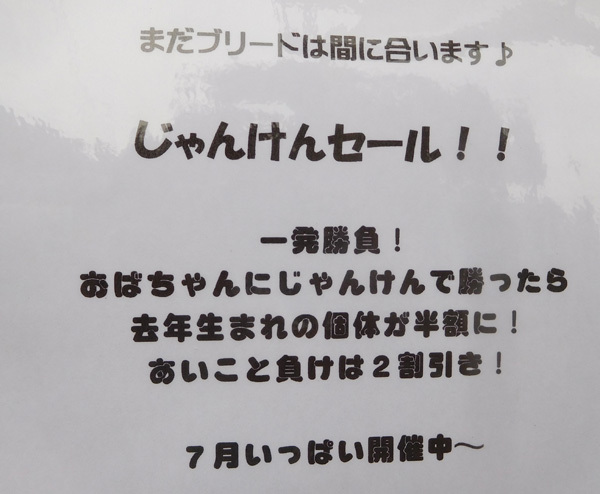 まだブリードは間に合います♪
じゃんけんセール！！
一発勝負！
おばちゃんにじゃんけんで勝ったら
去年生まれの個体が半額に！
あいこと負けは２割引き！
７月いっぱい開催中～